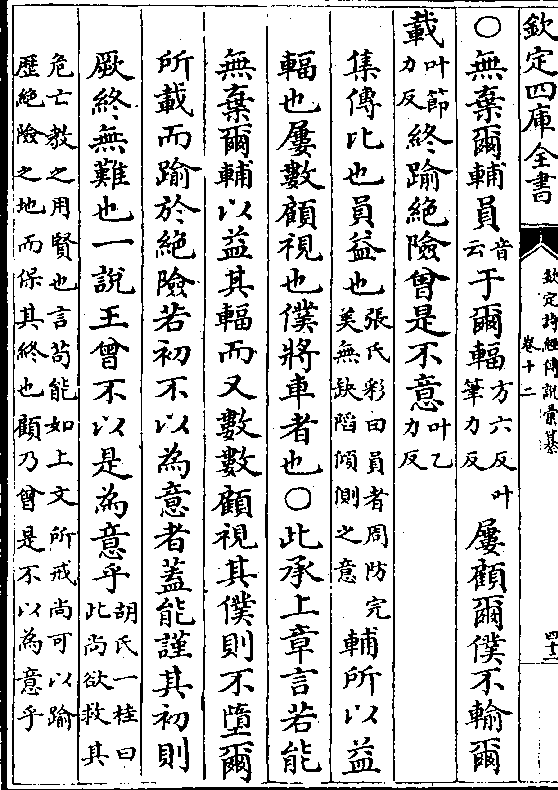 欽定四庫全書
欽定詩經傳說彙纂
卷十二
○無棄爾輔員音云于爾輻方六反叶筆力反屢顧爾僕不輸爾
載叶節力反終踰絕險曾是不意叶乙力反
集傳比也員益也張氏彩曰員者周防完美無缺陷傾側之意輔所以益
輻也屢數顧視也僕將車者也○此承上章言若能
無棄爾輔以益其輻而又數數顧視其僕則不墮爾
所載而踰於絕險若初不以為意者蓋能謹其初則
厥終無難也一說王曾不以是為意乎胡氏一桂曰此尚欲救其
危亡教之用賢也言苟能如上文所戒尚可以踰
歷絕險之地而保其終也顧乃曾是不以為意乎